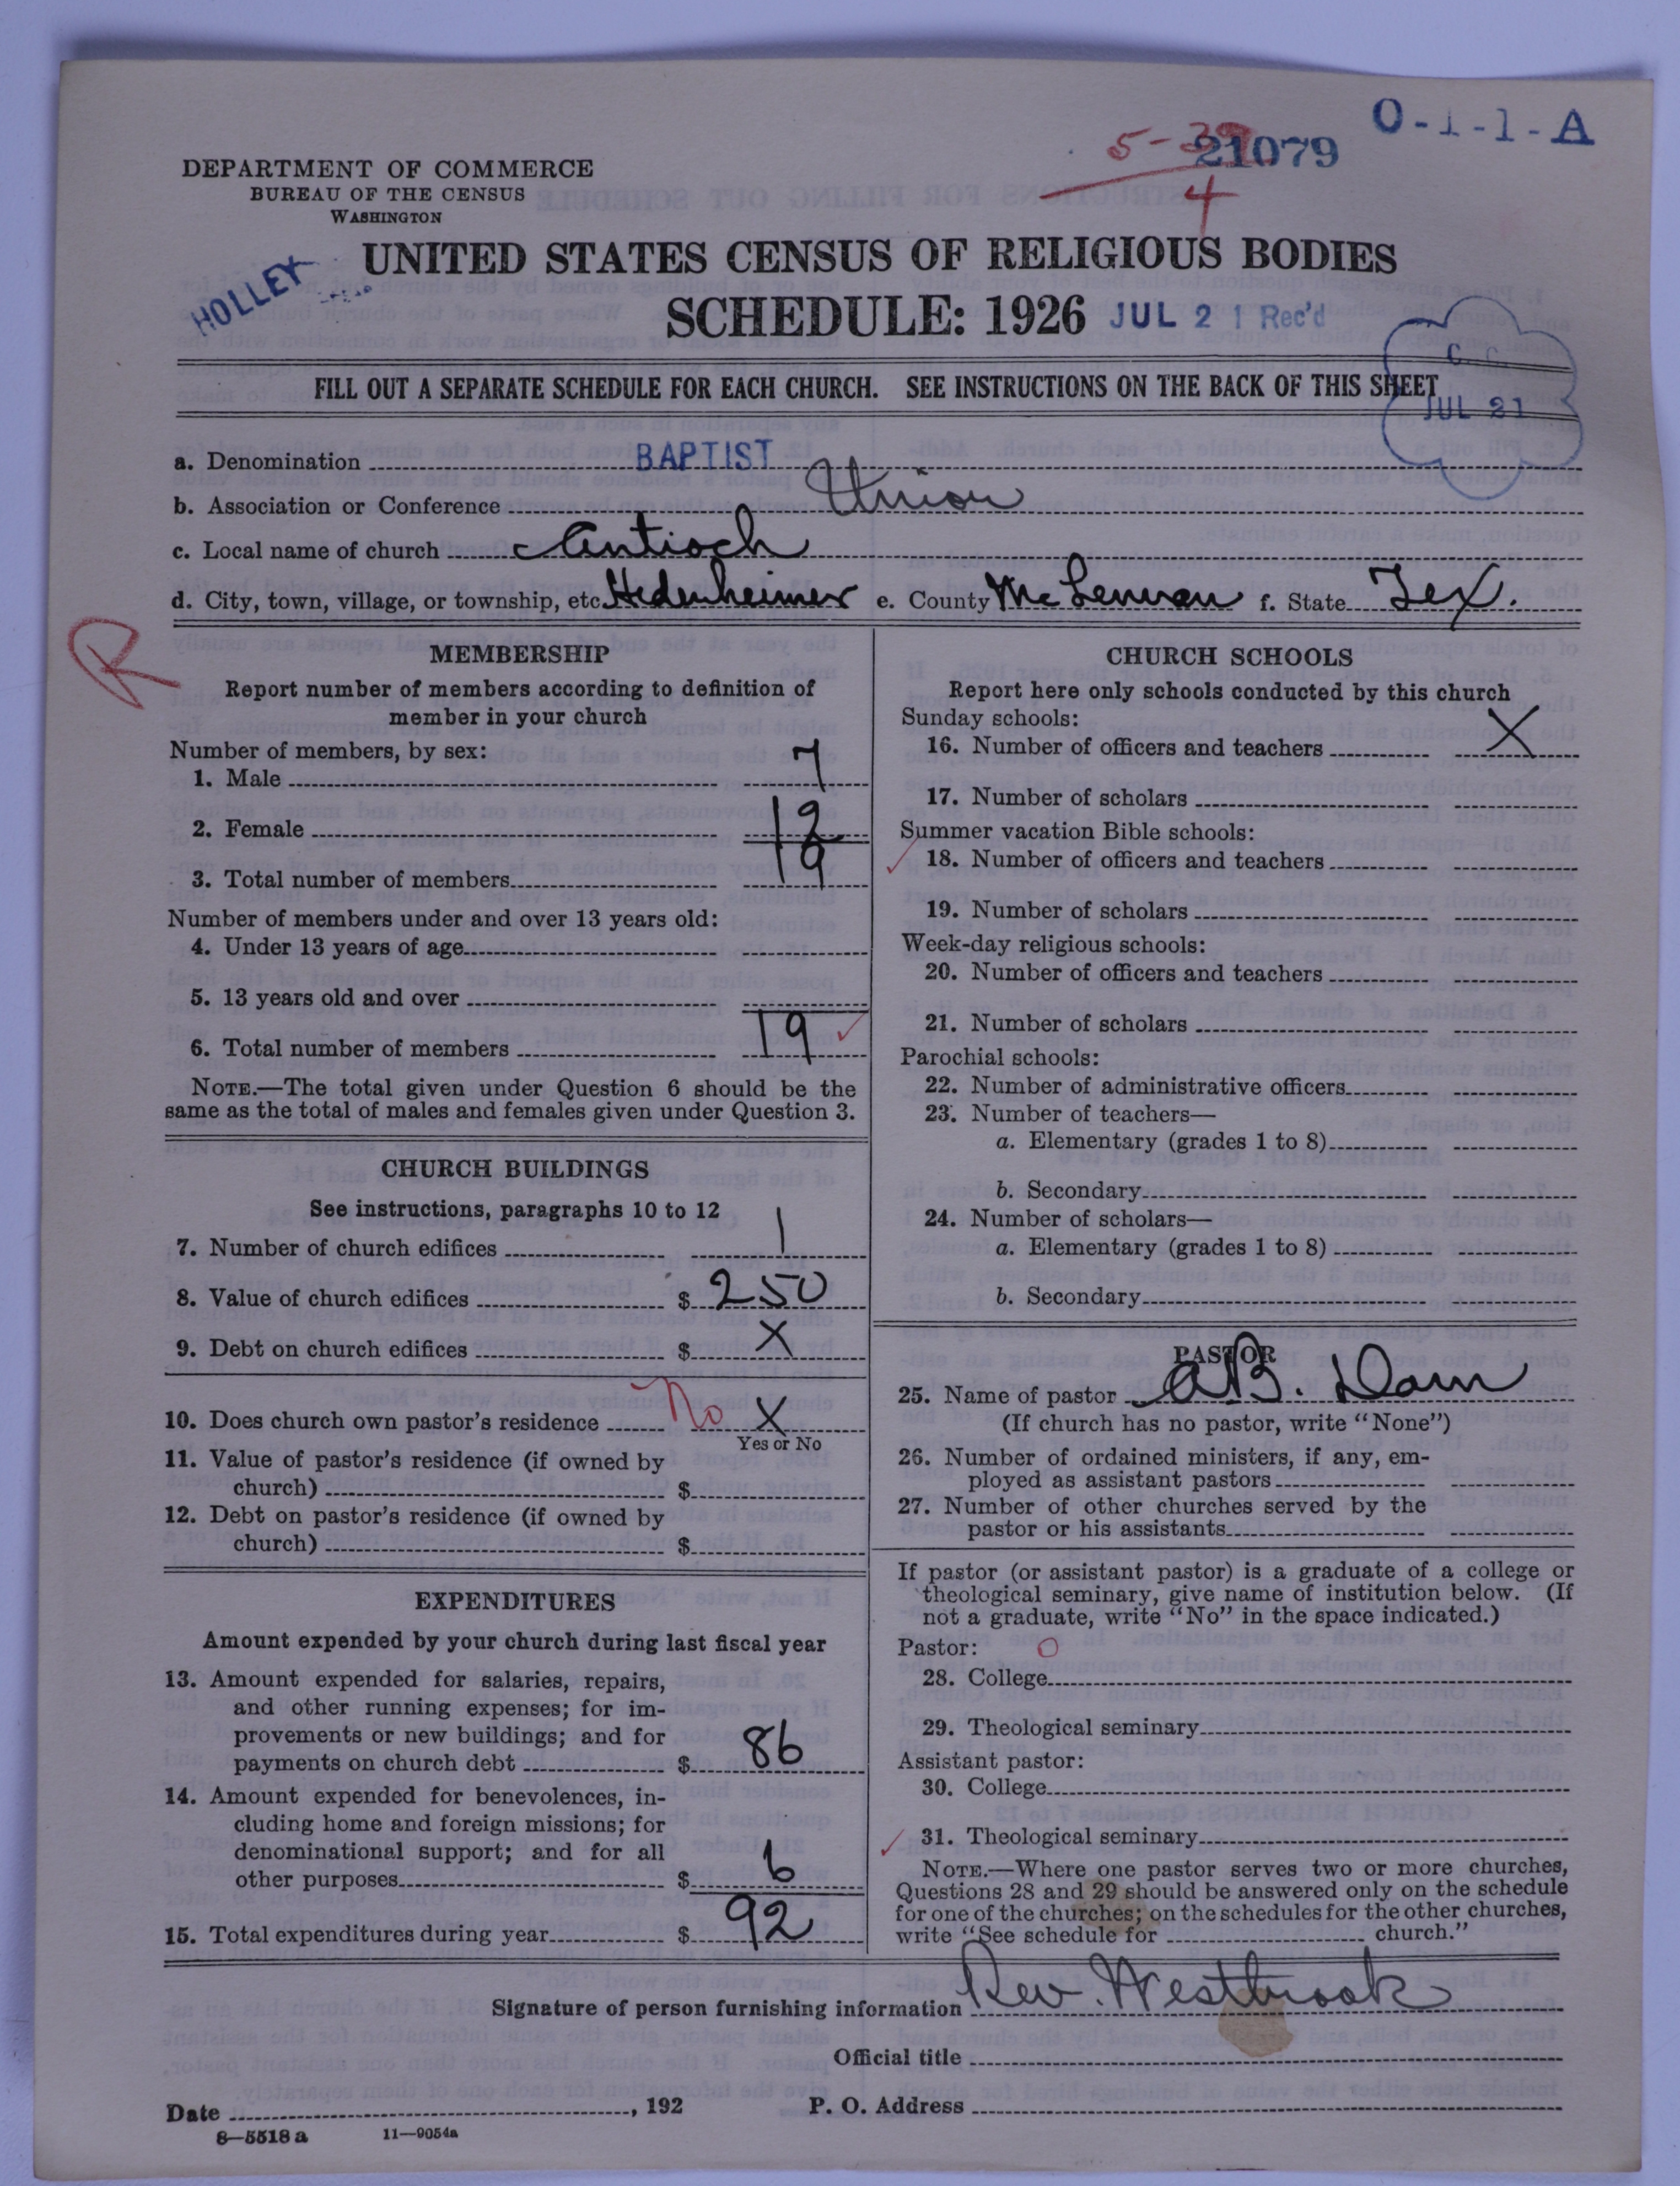 O-1-1-A
5-39
21079
4
DEPARTMENT OF COMMERCE
BUREAU OF THE CENSUS
WASHINGTON
UNITED STATES CENSUS OF RELIGIOUS BODIES
HOLLEY
SCHEDULE: 1926 JUL 21 Rec'd
FILL OUT A SEPARATE SCHEDULE FOR EACH CHURCH. SEE INSTRUCTIONS ON THE BACK OF THIS SHEET
JUL 21
a. Denomination BAPTIST
b. Association or Conference Union
c. Local name of church Antioch
d. City, town, village, or township, etc. Hedenheimer e. County McLennan f. State Tex.
R
MEMBERSHIP
Report number of members according to definition of
member in your church
Number of members, by sex:
1. Male 7
2. Female 12
3. Total number of members 19
Number of members under and over 13 years old:
4. Under 13 years of age
5. 13 years old and over
6. Total number of members 19
NOTE.—The total given under Question 6 should be the
same as the total of males and females given under Question 3.
CHURCH BUILDINGS
See instructions, paragraphs 10 to 12
7. Number of church edifices 1
8. Value of church edifices $ 250
9. Debt on church edifices $ X
10. Does church own pastor's residence No X
Yes or No
11. Value of pastor's residence (if owned by
church) $
12. Debt on pastor's residence (if owned by
church) $
EXPENDITURES
Amount expended by your church during last fiscal year
13. Amount expended for salaries, repairs,
and other running expenses; for im-
provements or new buildings; and for
payments on church debt $ 86
14. Amount expended for benevolences, in-
cluding home and foreign missions; for
denominational support; and for all
other purposes $ 6
15. Total expenditures during year $ 92
CHURCH SCHOOLS
Report here only schools conducted by this church
Sunday schools:
16. Number of officers and teachers X
17. Number of scholars
Summer vacation Bible schools:
18. Number of officers and teachers
19. Number of scholars
Week-day religious schools:
20. Number of officers and teachers
21. Number of scholars
Parochial schools:
22. Number of administrative officers
23. Number of teachers—
a. Elementary (grades 1 to 8)
b. Secondary
24. Number of scholars—
a. Elementary (grades 1 to 8)
b. Secondary
PASTOR
25. Name of pastor A.B. Dam
(If church has no pastor, write "None")
26. Number of ordained ministers, if any, em-
ployed as assistant pastors
27. Number of other churches served by the
pastor or his assistants
If pastor (or assistant pastor) is a graduate of a college or
theological seminary, give name of institution below. (If
not a graduate, write "No" in the space indicated.)
Pastor: O
28. College
29. Theological seminary
Assistant pastor:
30. College
31. Theological seminary
NOTE.—Where one pastor serves two or more churches,
Questions 28 and 29 should be answered only on the schedule
for one of the churches; on the schedules for the other churches,
write "See schedule for church."
Signature of person furnishing information Rev. Westbrook
Official title
Date , 192 P. O. Address
8—5518 a 11—9054a